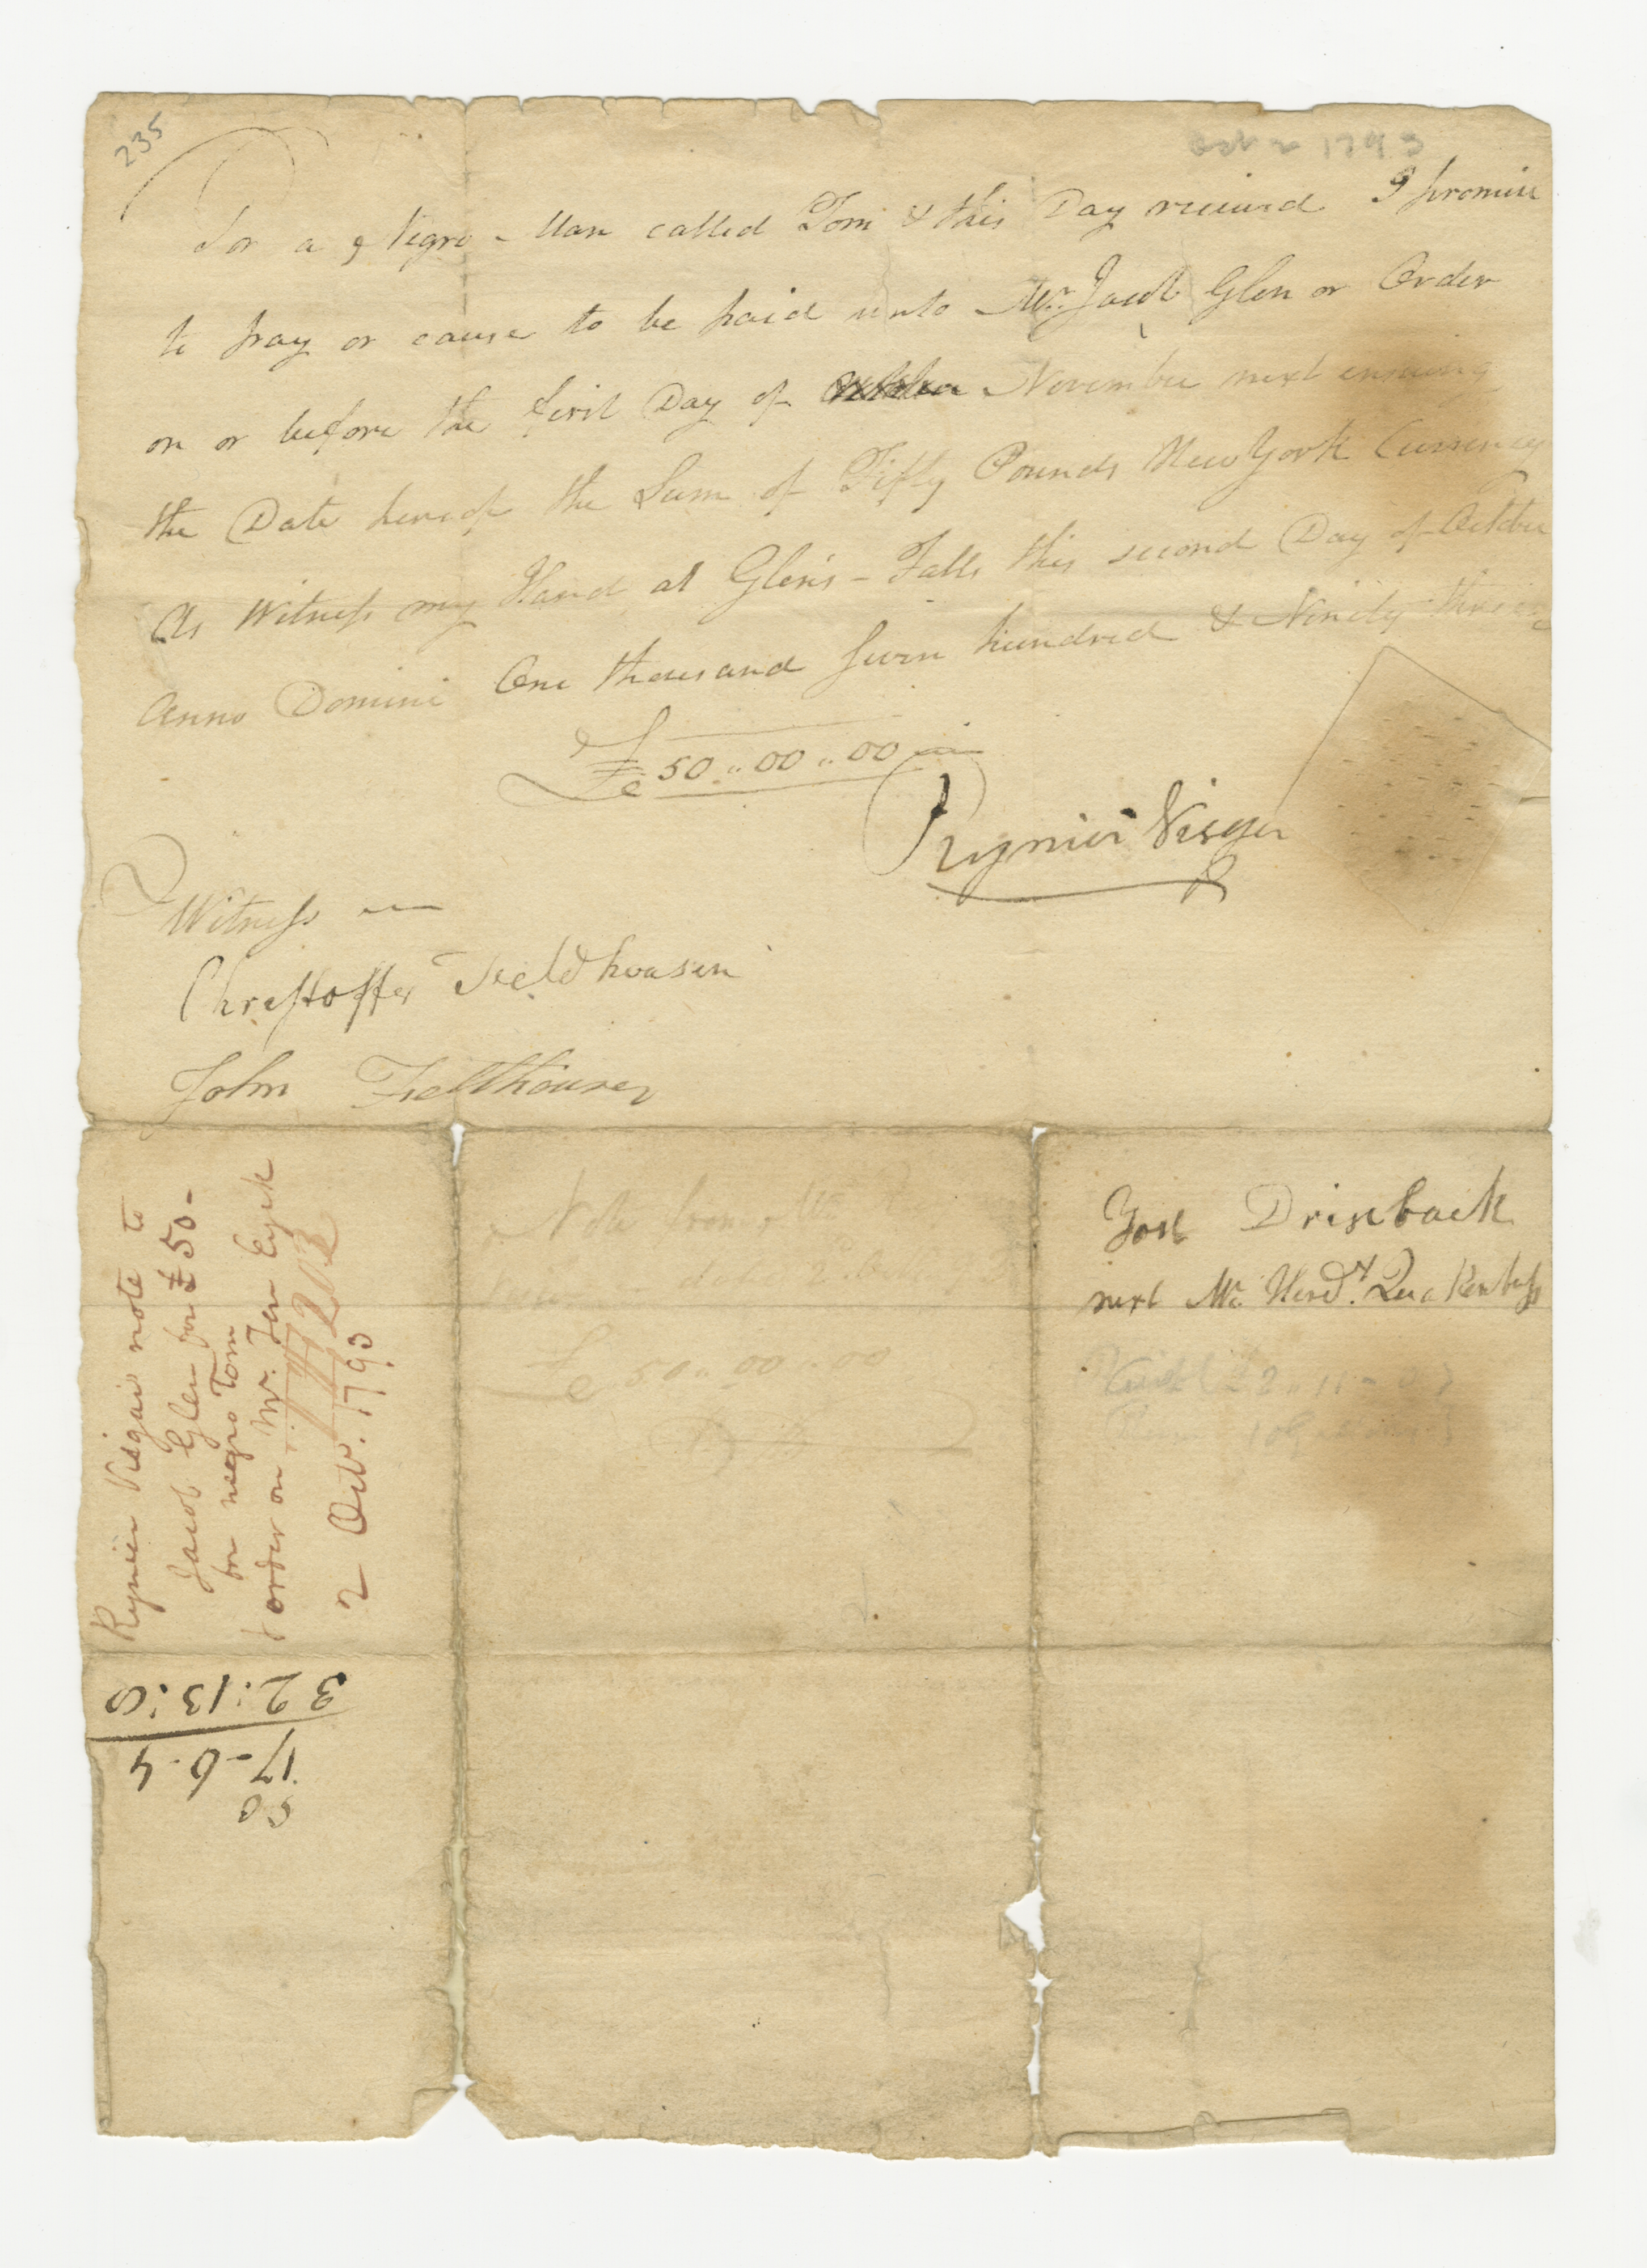 235
Oct 2 1793
For a Negro-Man called Tom & this Day received I promise
to pay or cause to be paid unto Mr. Jacob Glen or Order
on or before the first Day of November next ensuing
the Date hereof the Sum of Fifty Pounds New York Currency
As Witness my Hand at Glen's-Falls this second Day of October
Anno Domini One thousand seven hundred & Ninety three
£50..00..00
Rynier Visger
Witness
Christoffer Feeldhousen
John Felthousen
Rynier Visgar note to
Jacob Glen for £50-
for negro Tom
& order on Mr. Ten Eyck
2 Oct. 1793
Note from Mr
date 2
£50..00..00
Yost Drisback
next Mr. Hend. Quakenbuss
50
17-6-4
32:13:8